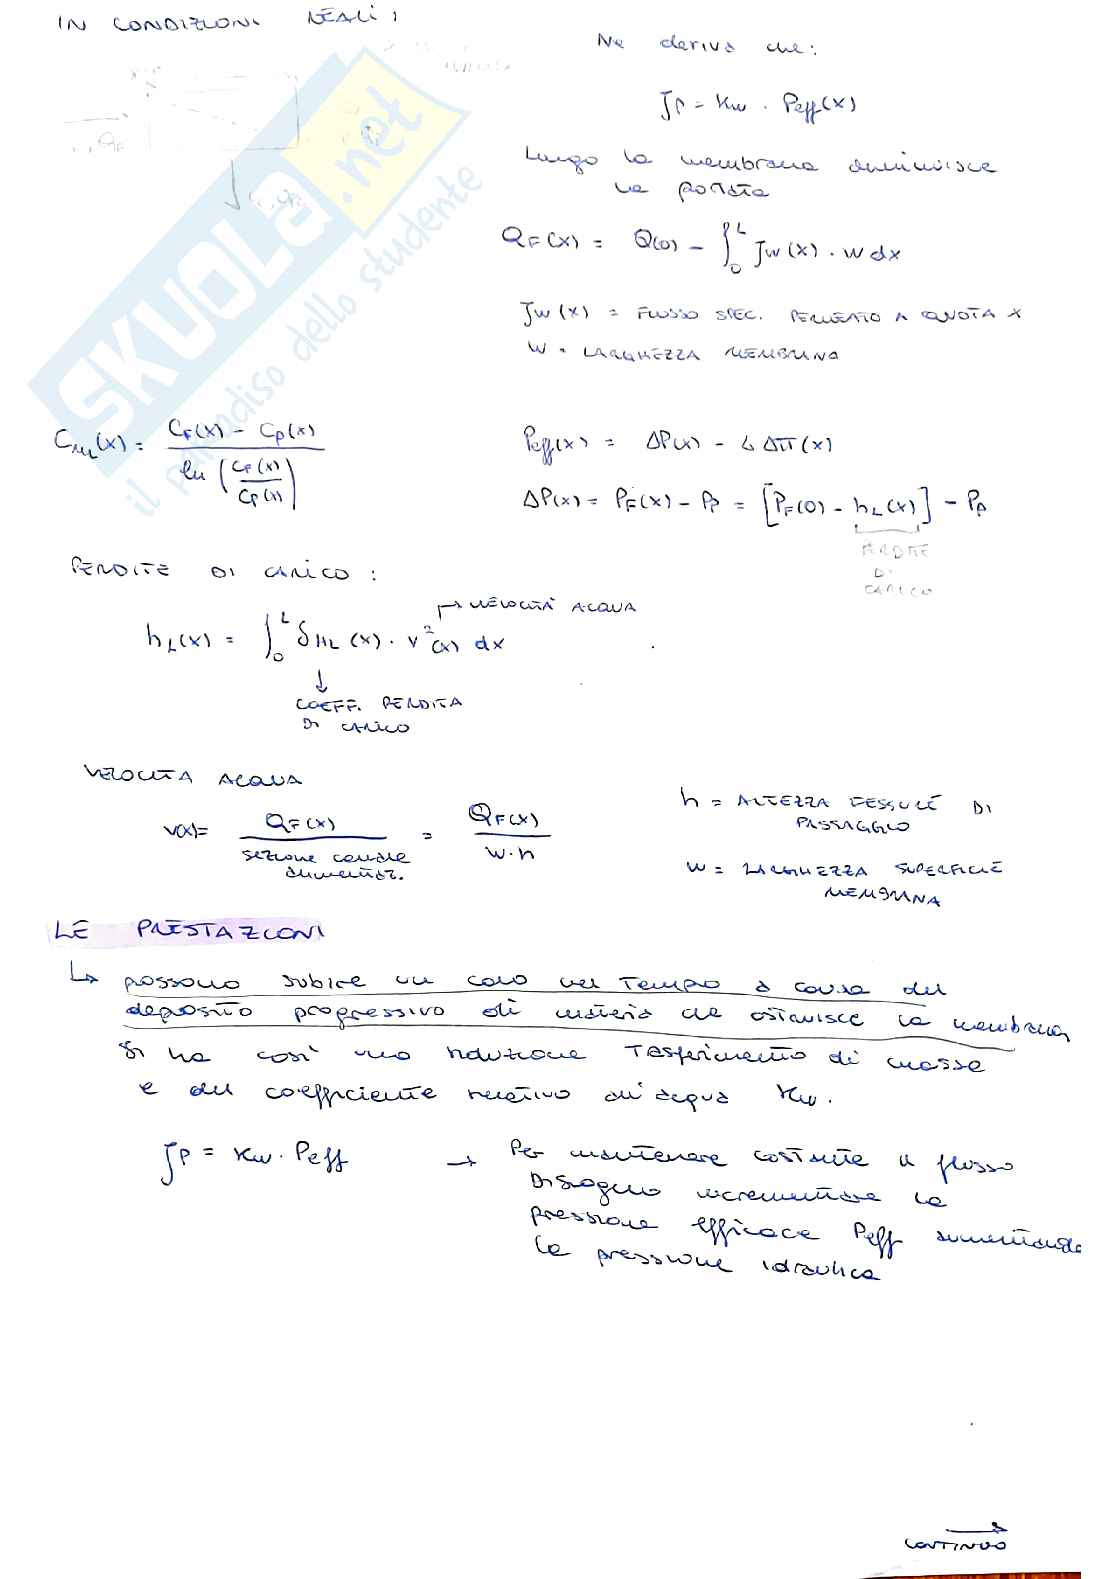 IN CONDIZIONI REALI:
Ne deriva che:
Jp = Kw · Peff(x)
Lungo la membrana diminuisce
la portata
QF(x) = Q(0) - ∫₀ᴸ Jw(x) · w dx
Jw(x) = FLUSSO SPEC. PERMEATO A QUOTA X
W = LARGHEZZA MEMBRANA
SKUOLA.net
il paradiso dello studente
CML(x) = (CF(x) - CP(x)) / ln(CF(x) / CP(x))
Peff(x) = ΔP(x) - ΔΠ(x)
ΔP(x) = PF(x) - PP = [PF(0) - hL(x)] - PP
PERDITE
DI
CARICO
PERDITE DI CARICO:
→ VELOCITÀ ACQUA
hL(x) = ∫₀ᴸ δHL(x) · v²(x) dx
↓
COEFF. PERDITA
DI CARICO
VELOCITÀ ACQUA
v(x) = QF(x) / sezione canale alimentaz. = QF(x) / w·h
h = ALTEZZA FESSURE DI
PASSAGGIO
W = LARGHEZZA SUPERFICIE
MEMBRANA
LE PRESTAZIONI
↳ possono subire un calo nel tempo a causa del
deposito progressivo di materia che ostruisce la membrana
Si ha così una riduzione trasferimento di massa
e del coefficiente relativo all'acqua Kw.
Jp = Kw · Peff → Per mantenere costante il flusso
bisogna incrementare la
pressione efficace Peff aumentando
la pressione idraulica
CONTINUO